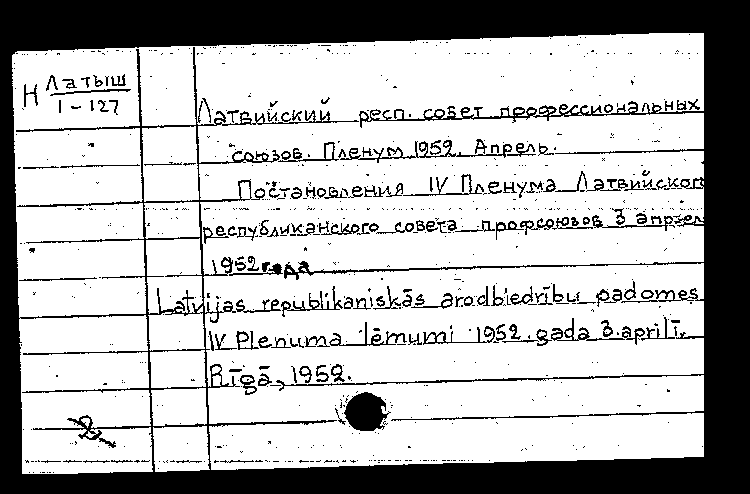 Н Латыш
1-127
Латвийский респ. совет профессиональных
союзов. Пленум 1952. Апрель.
Постановления IV Пленума Латвийског
республиканского совета профсоюзов 3 апрел
1952 года
Latvijas republikaniskās arodbiedrību padomes
IV Plenuma lēmumi 1952. gada 3. aprilī.
Rīgā, 1952.